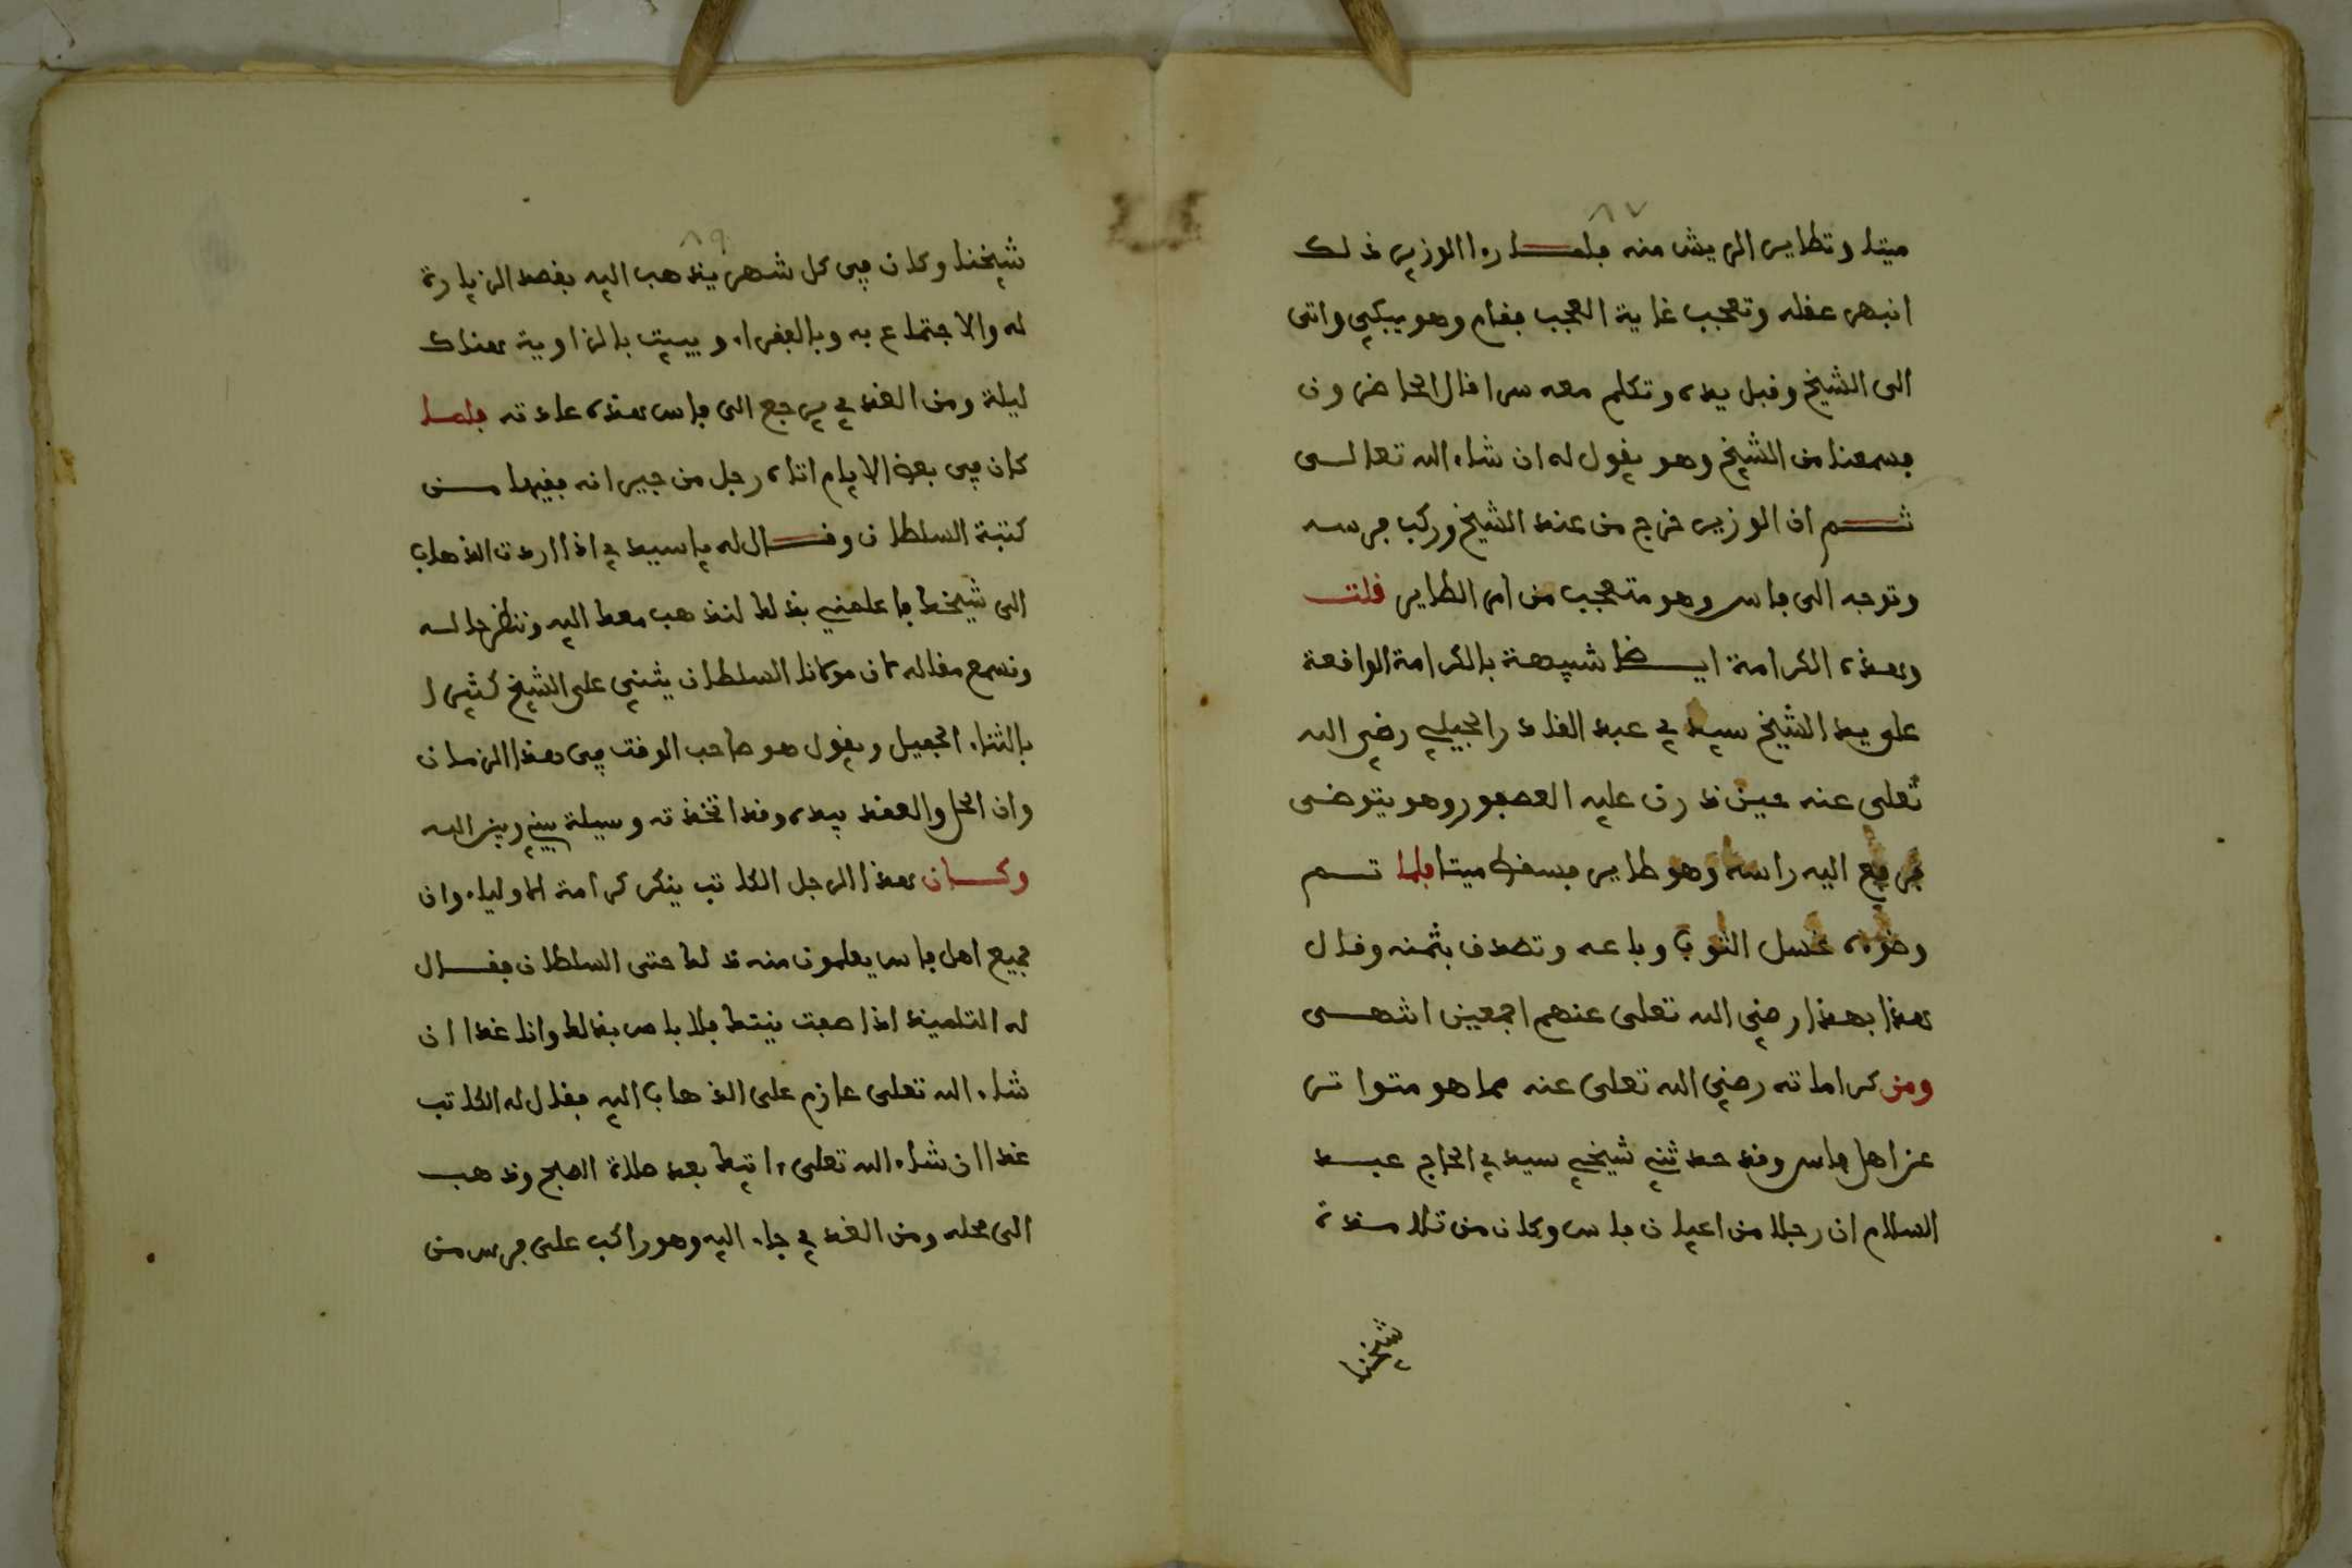 ٨٧
ميتا وتطاير الريش منه فلما را الوزير ذلك
انبهر عقله وتعجب غاية العجب فقام وهو يبكي واتى
الى الشيخ وقبل يده وتكلم معه سرا قال الحاضرون
فسمعنا من الشيخ وهو يقول له ان شاء الله تعالى
ثم ان الوزير خرج من عند الشيخ وركب فرسه
وتوجه الى فاس وهو متعجب من امر الطاير قلت
وهذه الكرامة ايضا شبيهة بالكرامة الواقعة
على يد الشيخ سيدي عبد القادر الجيلي رضي الله
تعلى عنه حين ذرق عليه العصفور وهو يتوضى
فرفع اليه راسه وهو طاير فسقط ميتا فلما تم
وضوءه غسل الثوب وباعه وتصدق بثمنه وقال
هذا بهذا رضي الله تعلى عنهم اجمعين انتهى
ومن كراماته رضي الله تعلى عنه مما هو متواتر
عن اهل فاس وقد حدثني شيخي سيدي الحاج عبد
السلام ان رجلا من اعيان فاس وكان من تلامذة
شيخنا
٨٩
شيخنا وكان في كل شهر يذهب اليه بقصد الزيارة
له والاجتماع به وبالفقراء ويبيت بالزاوية هناك
ليلة ومن الغد يرجع الى فاس هذه عادته فلما
كان في بعض الايام اتاه رجل من جيرانه فقيها من
كتبة السلطان وقال له يا سيدي اذا اردت الذهاب
الى شيخك فاعلمني بذلك لنذهب معك اليه وننظر حاله
ونسمع مقاله لان مولانا السلطان يثني على الشيخ كثيرا
بالثناء الجميل ويقول هو صاحب الوقت في هذا الزمان
وان الحل والعقد بيده وقد اتخذته وسيلة بيني وبين الله
وكان هذا الرجل الكاتب ينكر كرامة الاولياء وان
جميع اهل فاس يعلمون منه ذلك حتى السلطان فقال
له التلميذ اذا صفت نيتك فلا باس بذلك وانا غدا ان
شاء الله تعلى عازم على الذهاب اليه فقال له الكاتب
غدا ان شاء الله تعلى ءاتيك بعد صلاة الصبح وذهب
الى محله ومن الغد جاء اليه وهو راكب على فرس من